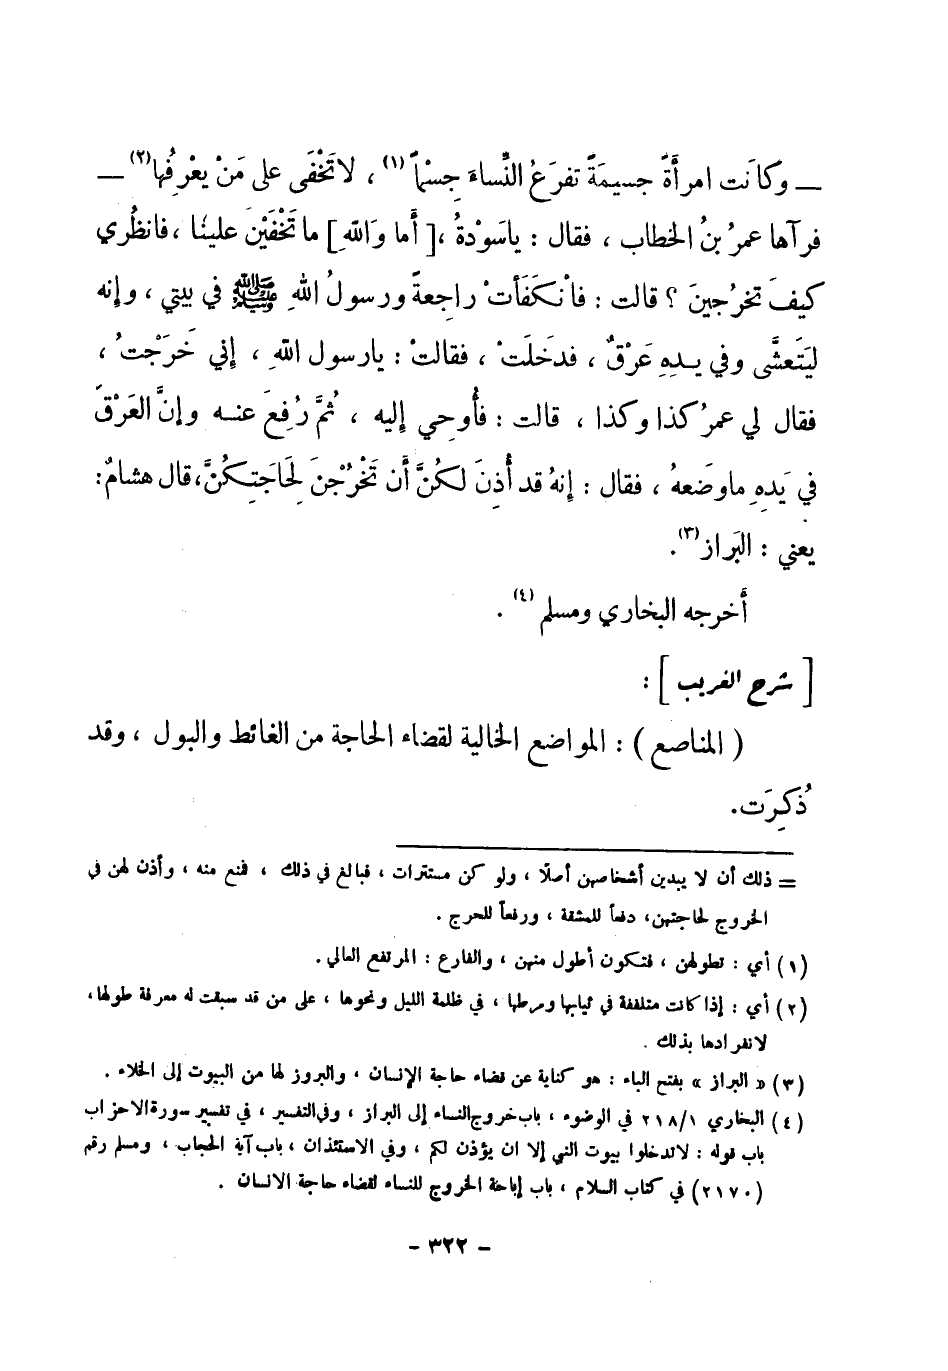 ــ وكانت امرأةً جسيمَةً تفرَعُ النِّساءَ جِسْماً (١) ، لا تَخْفَى على مَنْ يعْرِفُها(٢) ــ
فرآها عمرُ بنُ الخطاب ، فقال : ياسَوْدةُ ،[ أَما والله ِ] ما تَخْفَيْنَ علينا ،فانظُري
كيفَ تخرُجينَ ؟ قالت : فانْكَفَأتْ راجعةً ورسولُ اللهِ ﷺ في بيتي ، وإنه
ليَتَعشَّى وفي يــدِهِ عَرْقٌ ، فدَخلَتْ ، فقالتْ : يارسول اللهِ ، إني خَرَجْتُ ،
فقال لي عمرُ كذا وكذا ، قالت : فأُوحِي إليه ، ثُمَّ رُفِعَ عنــه وإنَّ العَرْقَ
في يَدِهِ ماوضَعهُ ، فقال : إنهُ قد أُذِنَ لكُنَّ أَن تَخْرُجْنَ لِحَاجَتِكُنَّ،قال هشامٌ:
يعني : البَراز(٣).
أَخرجه البخاري ومسلم (٤) .
[ شرح الغريب ] :
( المناصع ) : المواضع الخالية لقضاء الحاجة من الغائط والبول ، وقد
ذُكِرَت.
= ذلك أن لا يبدين أشخاصهن أصلًا ، ولو كن مستترات ، فبالغ في ذلك ، فمنع منه ، وأذن لهن في
الخروج لحاجتهن، دفعاً للمشقة ، ورفعاً للحرج .
(١) أي : تطولهن ، فتكون أطول منهن ، والفارع : المرتفع العالي .
(٢) أي : إذا كانت متلففة في ثيابها ومرطها ، في ظلمة الليل ونحوها ، على من قد سبقت له معرفة طولها،
لانفرادها بذلك .
(٣) « البراز » بفتح الباء : هو كناية عن قضاء حاجة الإنسان ، والبروز لها من البيوت إلى الخلاء .
(٤) البخاري ٢١٨/١ في الوضوء ، باب خروج النساء إلى البراز ، وفي التفسير ، في تفسير سورة الاحزاب
باب قوله : لاتدخلوا بيوت النبي إلا ان يؤذن لكم ، وفي الاستئذان ، باب آية الحجاب ، ومسلم رقم
(٢١٧٠) في كتاب السلام ، باب إباحة الخروج للنساء لقضاء حاجة الانسان .
- ٣٢٢ -